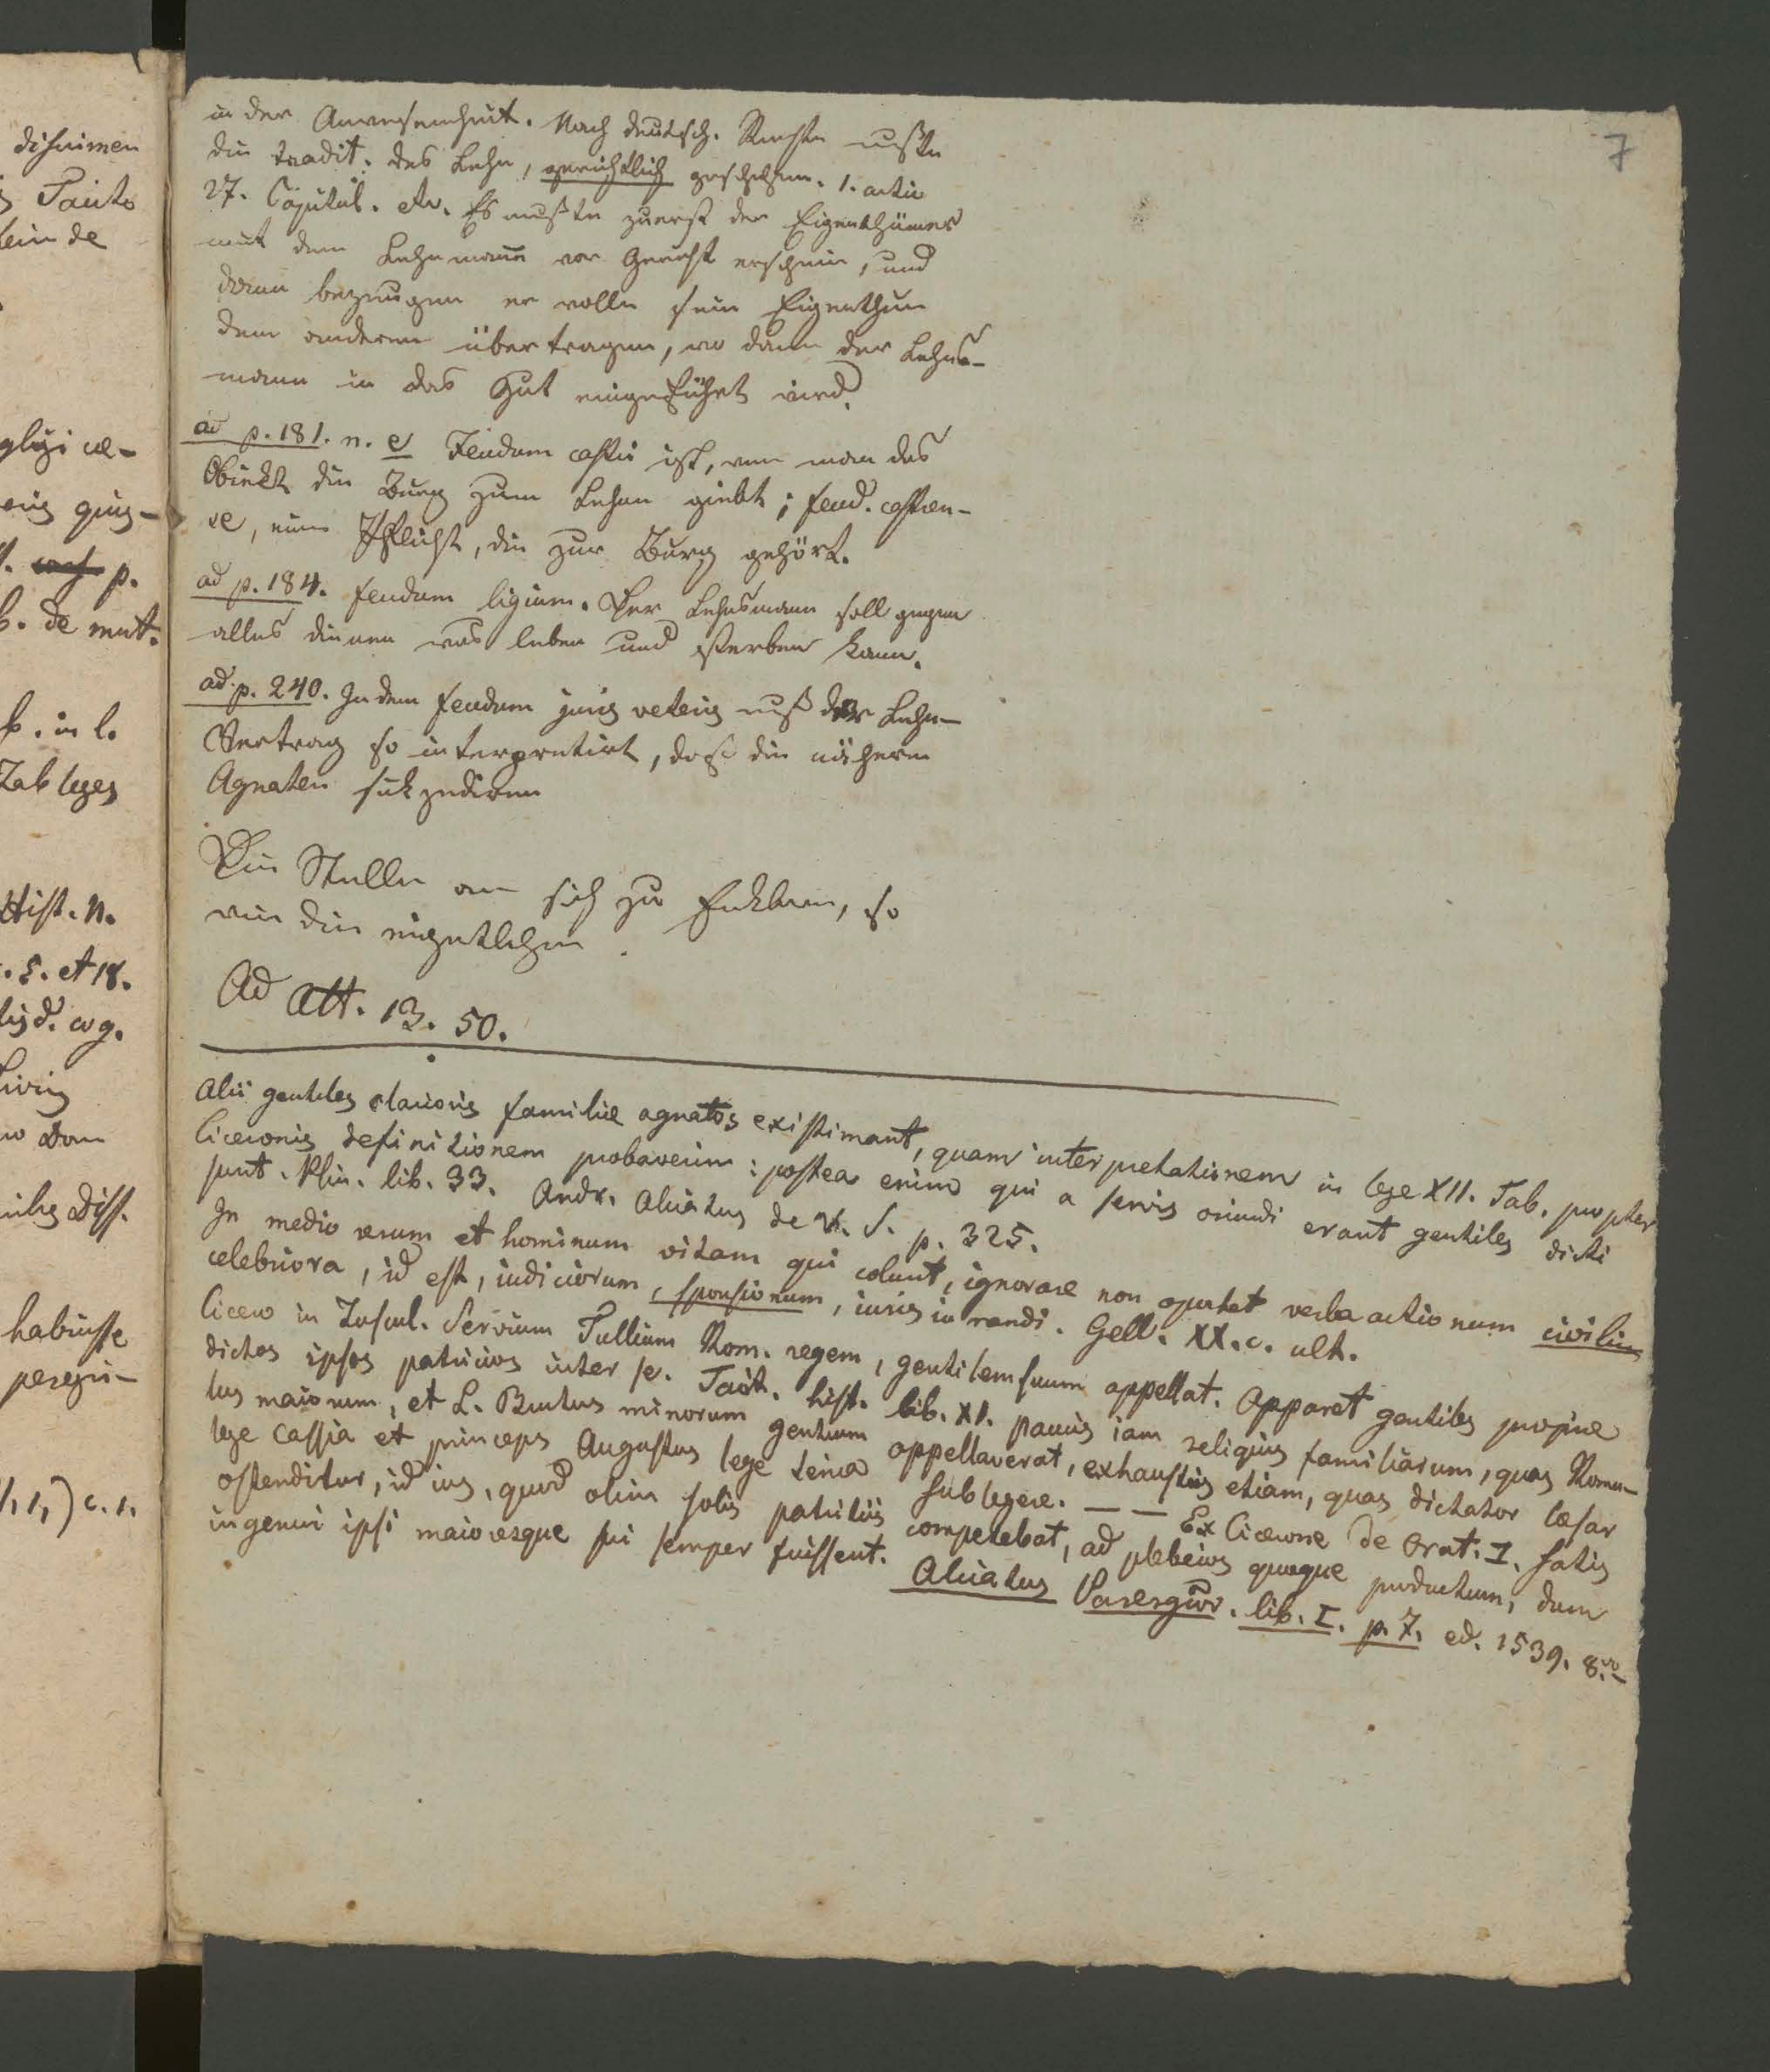 7
in der Anwesenheit. Nach deutsch. Rechte mußte
die tradit. des Lehn, gerichtlich geschehen. 1. actio
27. Capitul. etc. Es mußte zuerst der Eigenthümer
mit dem Lehnmann vor Gericht erschein, und
dann bezeugen er wolle sein Eigenthum
dem anderen übertragen, wo dann der Lehns-
mann in das Gut eingeführt wird.
ad p. 181. n. e Feudum castri ist, wen man das
Objekt die Burg zum Lehen giebt; feud. castren-
se, eine Pflicht, die zur Burg gehört.
ad p. 184. feudum ligium. Der Lehnsmann soll gegen
alles dienen was leben und sterben kann.
ad p. 240. In dem feudum juris veteris muß der Lehn-
Vertrag so interpretirt, daß die nähern
Agnaten sukzediren
Die Stelle an sich zu
wie die
Ad Att. 13. 50.
Alii gentiles clarioris familiae agnatos existimant, quam interpretationem in lege XII. Tab. propter
Ciceronis definitionem probaverim: postea enim qui a servis oriundi erant gentiles dicti
sunt. Plin. lib. 33. Andr. Alciatus de V. S. p. 325.
In medio rerum et hominum vitam qui colunt, ignorare non oportet verba actionum civilium
celebriora, id est, iudiciorum, sponsionum, iuris iurandi. Gell. XX. c. ult.
Cicero in Tuscul. Servium Tullium Rom. regem, gentilem suum appellat. Apparet gentiles proprie
dictos ipsos patricios inter se. Tacit. hist. lib. XI. paucis iam reliquis familiarum, quas Romu-
lus maiorum, et L. Brutus minorum gentium appellaverat, exhaustis etiam, quas dictator Caesar
lege Cassia et princeps Augustus lege Senia sublegere. — — Ex Cicerone de Orat. I. satis
ostenditur, id ius, quod olim solis patritiis competebat, ad plebeios quoque productum, dum
ingenui ipsi maioresque sui semper fuissent. Alciatus Parergῶν. lib. I. p. 7. ed. 1539. 8.vo